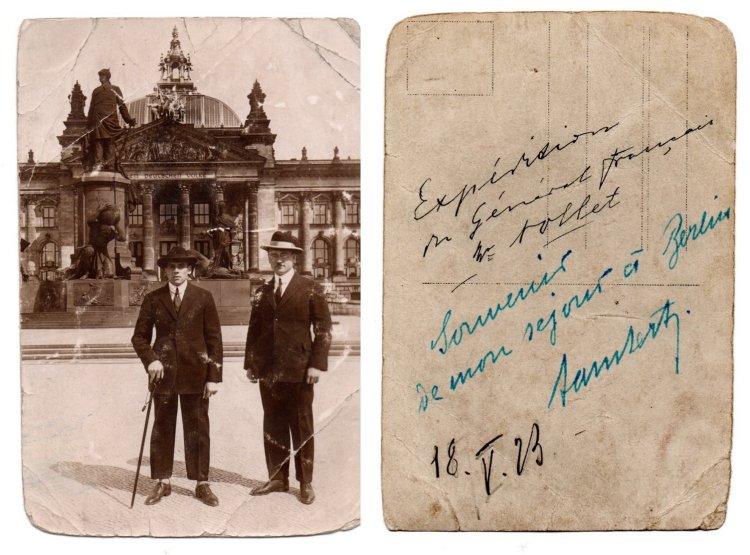 DEUTSCHEN VOLKE
Expédition
Général français
Nollet
Souvenir
de mon sejour à Berlin
Lambert
18. V. 23